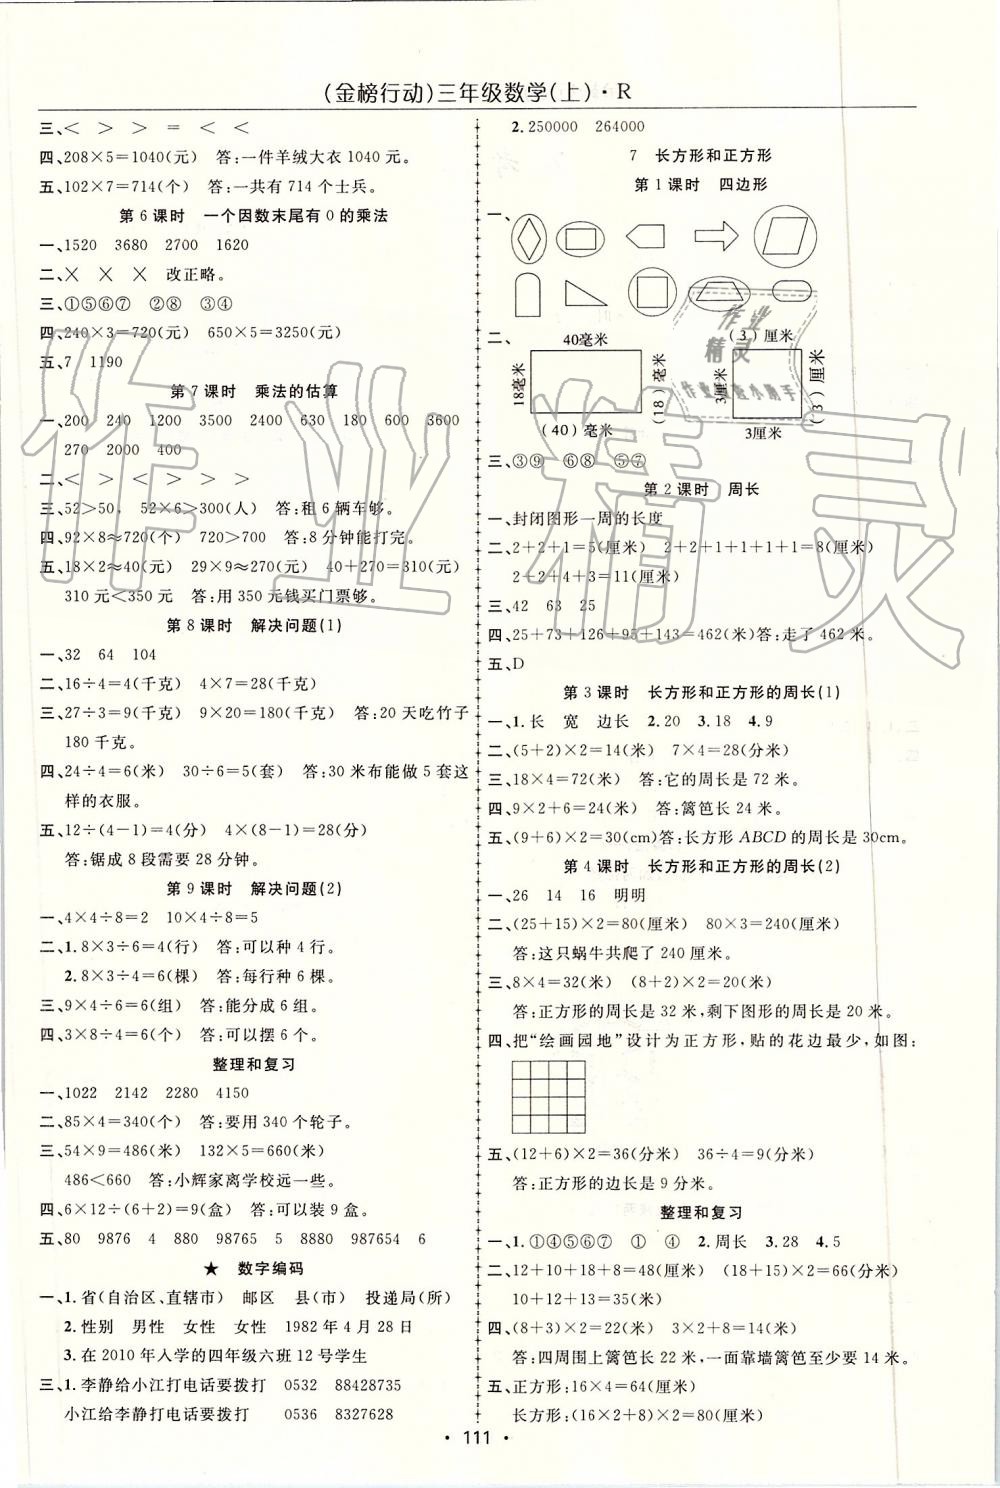 (金榜行动)三年级数学(上)·R
三、< > > = < <
四、208×5=1040(元) 答:一件羊绒大衣 1040 元。
五、102×7=714(个) 答:一共有 714 个士兵。
第 6 课时 一个因数末尾有 0 的乘法
一、1520 3680 2700 1620
二、× × × 改正略。
三、①⑤⑥⑦ ②⑧ ③④
四、240×3=720(元) 650×5=3250(元)
五、7 1190
第 7 课时 乘法的估算
一、200 240 1200 3500 2400 630 600 3600
270 2000 400
二、< > < > > >
三、52>50, 52×6>300(人) 答:租 6 辆车够。
四、92×8≈720(个) 720>700 答:8 分钟能打完。
五、18×2≈40(元) 29×9≈270(元) 40+270=310(元)
310 元<350 元 答:用 350 元钱买门票够。
第 8 课时 解决问题(1)
一、32 64 104
二、16÷4=4(千克) 4×7=28(千克)
三、27÷3=9(千克) 9×20=180(千克) 答:20 天吃竹子
180 千克。
四、24÷4=6(米) 30÷6=5(套) 答:30 米布能做 5 套这
样的衣服。
五、12÷(4-1)=4(分) 4×(8-1)=28(分)
答:锯成 8 段需要 28 分钟。
第 9 课时 解决问题(2)
一、4×4÷8=2 10×4÷8=5
二、1.8×3÷6=4(行) 答:可以种 4 行。
2.8×3÷4=6(棵) 答:每行种 6 棵。
三、9×4÷6=6(组) 答:能分成 6 组。
四、3×8÷4=6(个) 答:可以摆 6 个。
整理和复习
一、1022 2142 2280 4150
二、85×4=340(个) 答:要用 340 个轮子。
三、54×9=486(米) 132×5=660(米)
486<660 答:小辉家离学校远一些。
四、6×12÷(6+2)=9(盒) 答:可以装 9 盒。
五、80 9876 4 880 98765 5 8880 987654 6
★ 数字编码
一、1.省(自治区、直辖市) 邮区 县(市) 投递局(所)
2.性别 男性 女性 女性 1982 年 4 月 28 日
3.在 2010 年入学的四年级六班 12 号学生
三、1.李静给小江打电话要拨打 0532 88428735
小江给李静打电话要拨打 0536 8327628
2.250000 264000
7 长方形和正方形
第 1 课时 四边形
一、
二、
40毫米
18毫米
(18)毫米
(40)毫米
(3)厘米
3厘米
(3)厘米
3厘米
三、③⑨ ⑥⑧ ⑤⑦
第 2 课时 周长
一、封闭图形一周的长度
二、2+2+1=5(厘米) 2+2+1+1+1+1=8(厘米)
2+2+4+3=11(厘米)
三、42 63 25
四、25+73+126+95+143=462(米)答:走了 462 米。
五、D
第 3 课时 长方形和正方形的周长(1)
一、1.长 宽 边长 2.20 3.18 4.9
二、(5+2)×2=14(厘米) 7×4=28(分米)
三、18×4=72(米) 答:它的周长是 72 米。
四、9×2+6=24(米) 答:篱笆长 24 米。
五、(9+6)×2=30(cm)答:长方形 ABCD 的周长是 30cm。
第 4 课时 长方形和正方形的周长(2)
一、26 14 16 明明
二、(25+15)×2=80(厘米) 80×3=240(厘米)
答:这只蜗牛共爬了 240 厘米。
三、8×4=32(米) (8+2)×2=20(米)
答:正方形的周长是 32 米,剩下图形的周长是 20 米。
四、把“绘画园地”设计为正方形,贴的花边最少,如图:
五、(12+6)×2=36(分米) 36÷4=9(分米)
答:正方形的边长是 9 分米。
整理和复习
一、1.①④⑤⑥⑦ ① ④ 2.周长 3.28 4.5
二、12+10+18+8=48(厘米) (18+15)×2=66(分米)
10+12+13=35(米)
四、(8+3)×2=22(米) 3×2+8=14(米)
答:四周围上篱笆长 22 米,一面靠墙篱笆至少要 14 米。
五、正方形:16×4=64(厘米)
长方形:(16×2+8)×2=80(厘米)
· 111 ·
作业精灵
作业
精灵